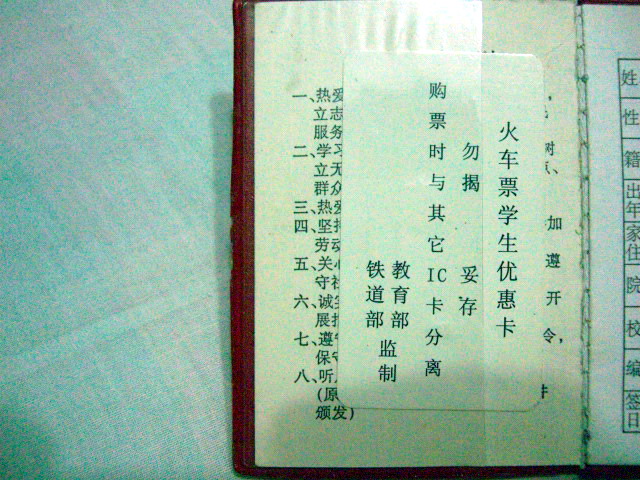 火车票学生优惠卡
勿揭 妥存
购票时与其它IC卡分离
教育部
铁道部
监制
一、热爱
立志
服务
二、学习
立无
群众
三、热爱
四、坚持
劳动
五、关心
守社
六、诚实
展
七、遵守
保守
八、听
(原
颁发)
加
遵
开
令,
件
姓
性
籍
出
年
家
住
院
校
编
签
日